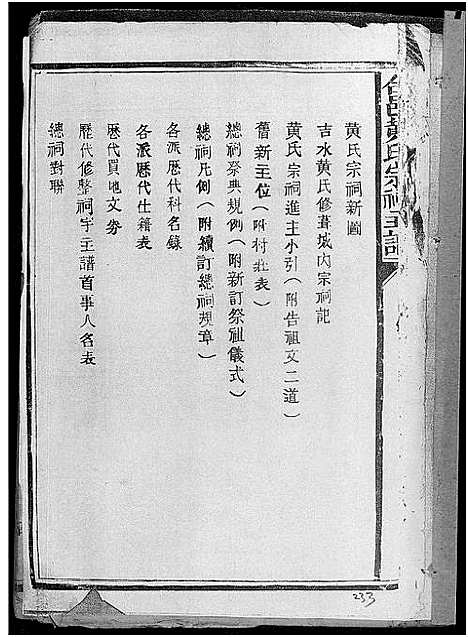 合邑黃氏宗祠主譜
黃氏宗祠新圖
吉水黃氏修葺城內宗祠記
黃氏宗祠進主小引（附告祖文二道）
舊新主位（附村莊表）
總祠祭典規例（附新訂祭祖儀式）
總祠凡例（附續訂總祠規章）
各派歷代科名錄
各派歷代仕籍表
歷代買地文券
歷代修整祠宇主譜首事人名表
總祠對聯
233